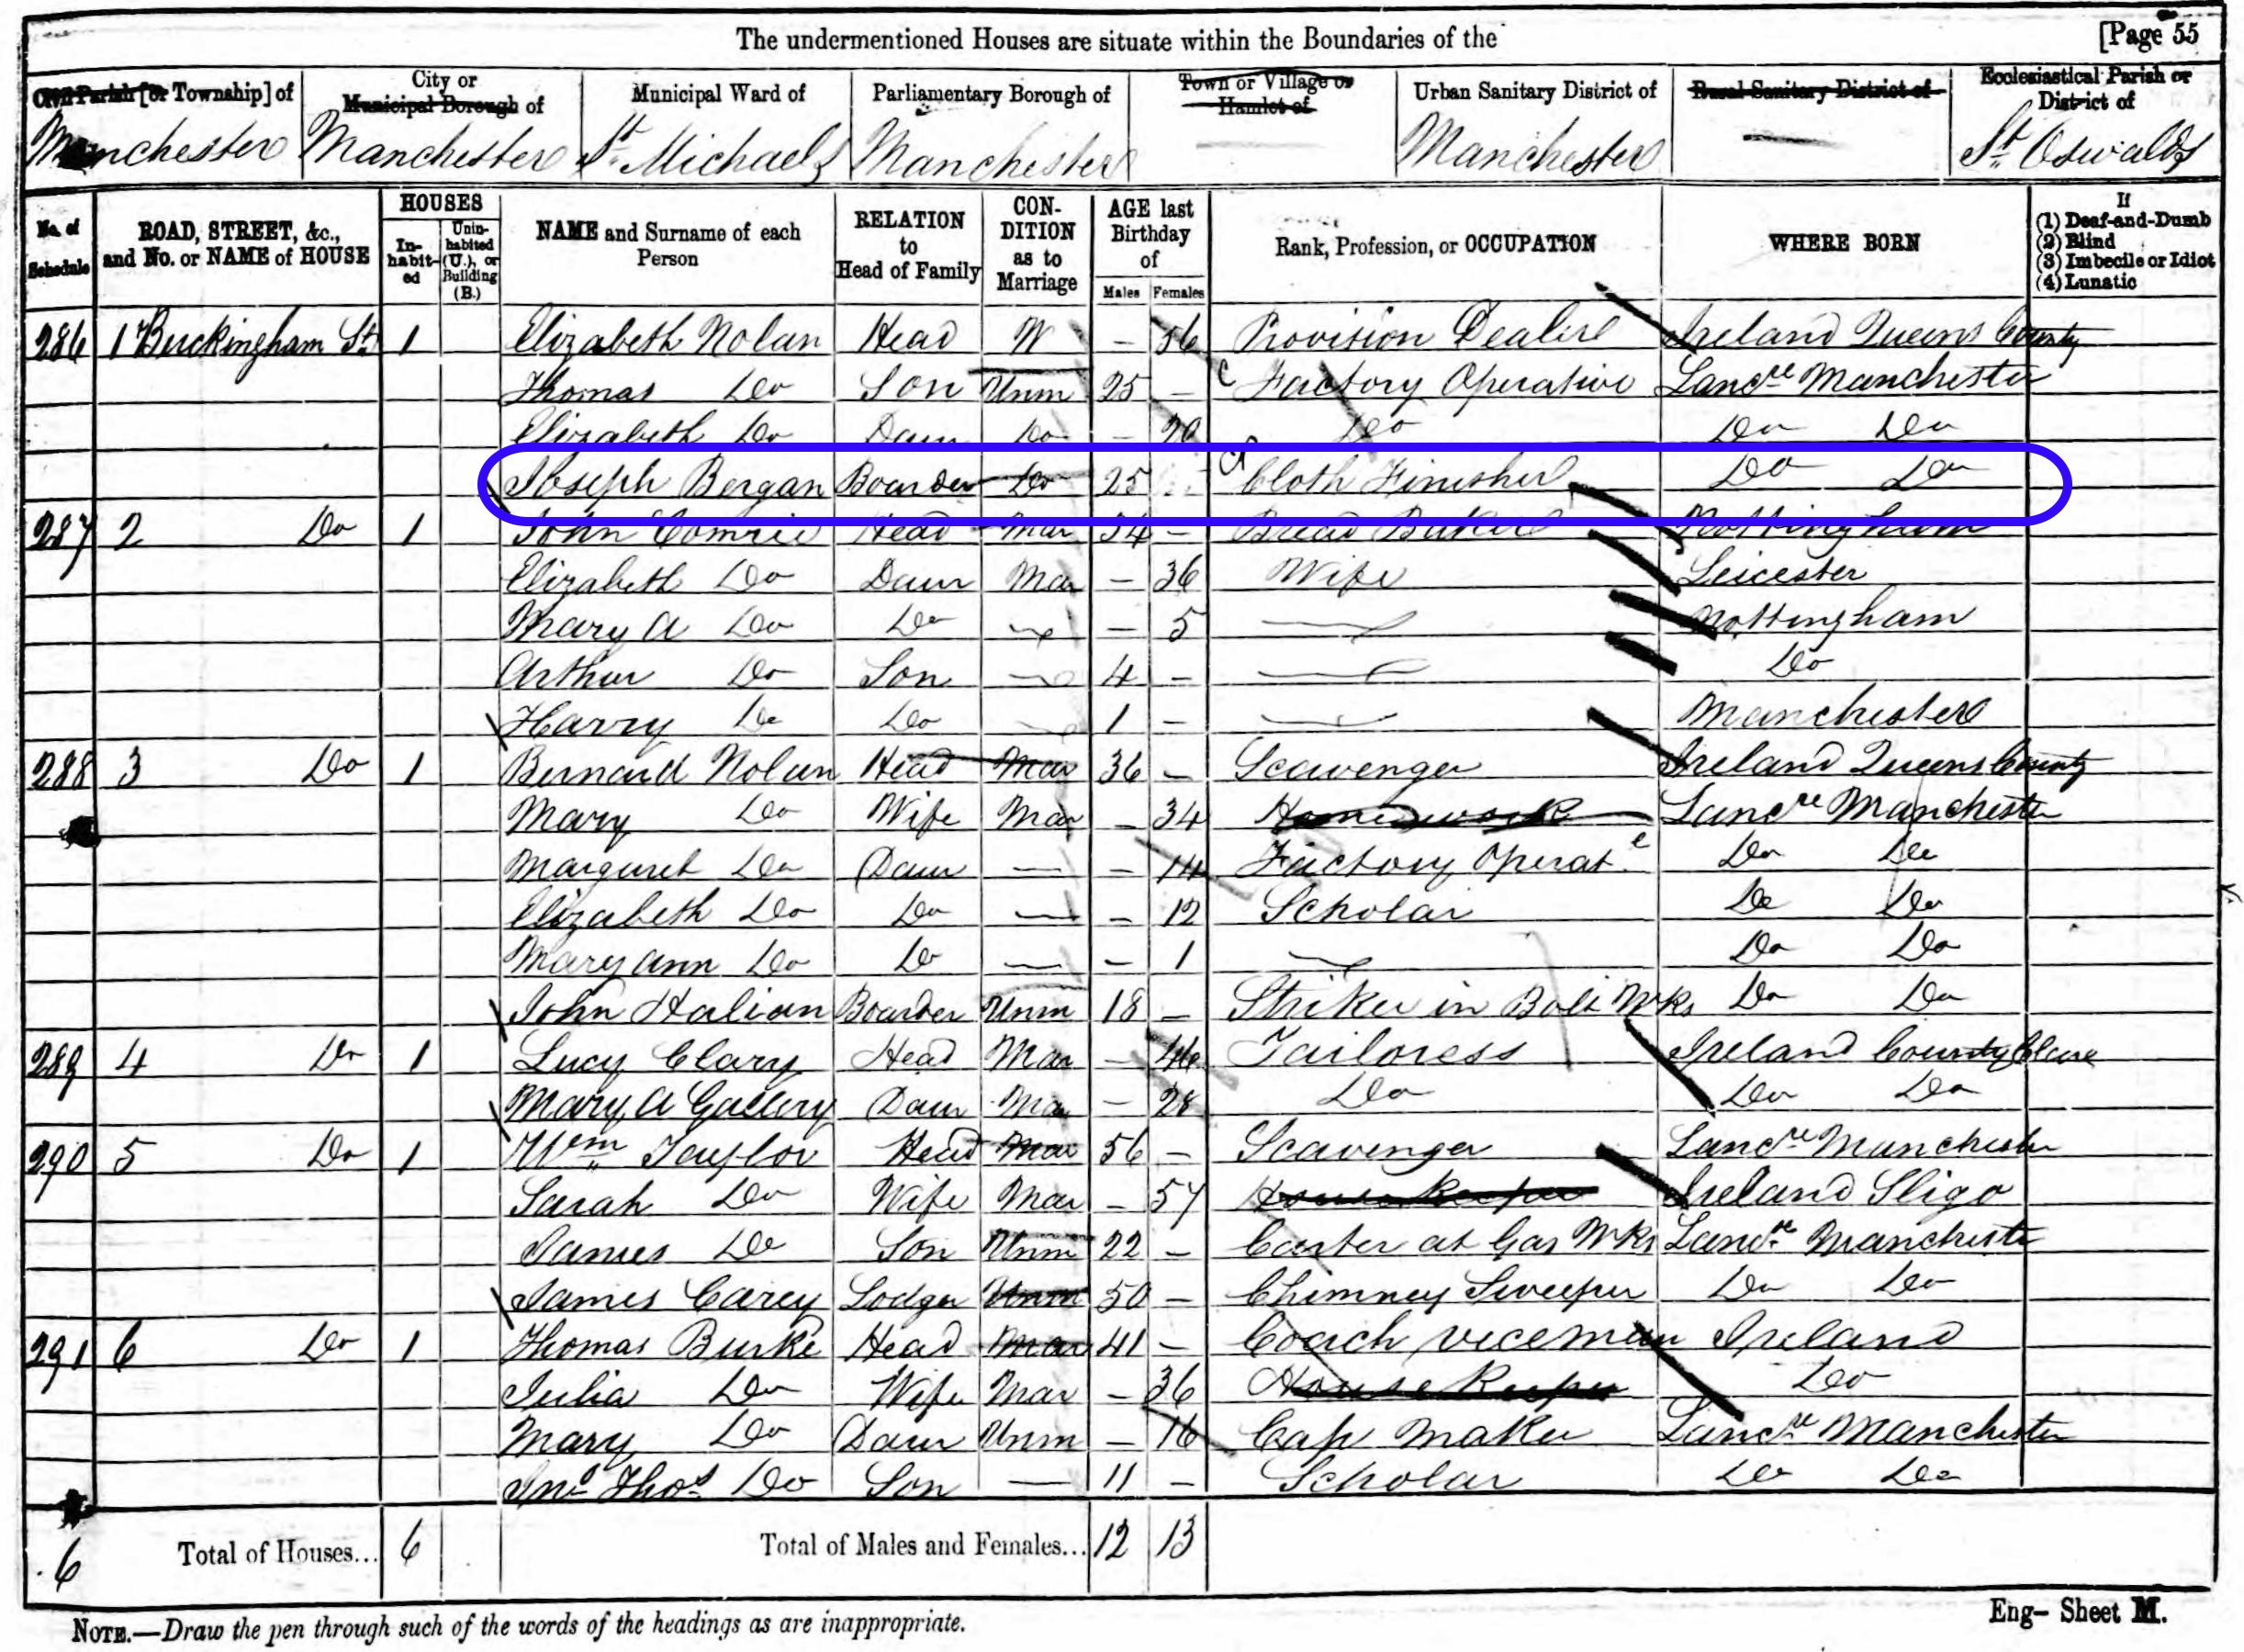 The undermentioned Houses are situate within the Boundaries of the [Page 55
Civil Parish [or Township] of City or Municipal Borough of Municipal Ward of Parliamentary Borough of Town or Village or Hamlet of Urban Sanitary District of Rural Sanitary District of Ecclesiastical Parish or District of
Manchester Manchester St Michaels Manchester Manchester St Oswalds
No. of Schedule ROAD, STREET, &c., and No. or NAME of HOUSE HOUSES In-habit-ed Unin-habited (U.), or Building (B.) NAME and Surname of each Person RELATION to Head of Family CON-DITION as to Marriage AGE last Birthday of Males Females Rank, Profession, or OCCUPATION WHERE BORN If (1) Deaf-and-Dumb (2) Blind (3) Imbecile or Idiot (4) Lunatic
286 1 Buckingham St 1 Elizabeth Nolan Head W – 56 Provision Dealer Ireland Queens County
Thomas Do Son Unm 25 – Factory Operative Lancre Manchester
Elizabeth Do Daur Do – 20 Do Do Do
Joseph Bergan Boarder Do 25 Cloth Finisher Do Do
287 2 Do 1 John Comrie Head Mar 34 – Bread Baker Nottingham
Elizabeth Do Daur Mar – 36 Wife Leicester
Mary A Do Do – 5 Nottingham
Arthur Do Son 4 – Do
Harry Do Do 1 – Manchester
288 3 Do 1 Bernard Nolan Head Mar 36 – Scavenger Ireland Queens County
Mary Do Wife Mar – 34 Lancre Manchester
Margaret Do Daur — – 14 Factory Operate Do Do
Elizabeth Do Do — – 12 Scholar Do Do
Mary ann Do Do — – 1 Do Do
John Halian Boarder Unm 18 – Striker in Bolt Wks Do Do
289 4 Do 1 Lucy Clary Head Mar – 46 Tailoress Ireland County Clare
Mary A Gallery Daur Mar – 28 Do Do Do
290 5 Do 1 Wm Taylor Head Mar 56 – Scavenger Lancre Manchester
Sarah Do Wife Mar – 57 House Keeper Ireland Sligo
James Do Son Unm 22 – Carter at Gas Wks Lancre Manchester
James Carey Lodger Unm 50 – Chimney Sweeper Do Do
291 6 Do 1 Thomas Burke Head Mar 41 – Coach viceman Ireland
Julia Do Wife Mar – 36 House Keeper Do
Mary Do Daur Unm – 16 Cap Maker Lancre Manchester
Jno Thos Do Son — 11 – Scholar Do Do
6 Total of Houses... 6 Total of Males and Females... 12 13
NOTE.—Draw the pen through such of the words of the headings as are inappropriate. Eng– Sheet M.